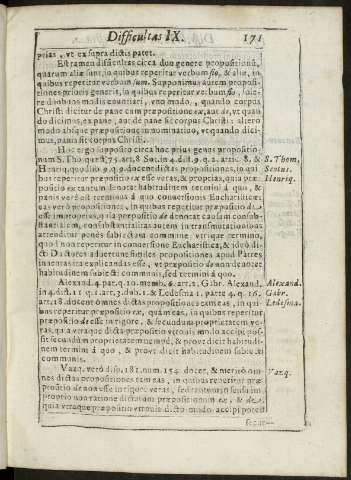 Difficultas IX. 171
prias, vt ex supra dictis patet.
Est tamen difficultas circa duo genere propositionũ,
quarum aliæ sunt, in quibus reperitur verbum fio, & aliæ, in
quibus reperitur verbum sum. Supponimus autem propositi-
tiones prioris generis, in quibus reperitur verbum fio, sole-
re duobus modis enuntiari, vno modo, quando corpus
Christi dicitur de pane cum præpositione ex, aut de, vt quan-
do dicimus, ex pane, aut de pane fit corpus Christi: altero
modo absque præpositione in nominatiuo, vt quando dici-
mus, panis fit corpus Christi.
Hoc ergo supposito circa hoc prius genus propositio-
num S. Tho. quæst. 75. art. 8 Scot. in 4. dist. 11. q. 2. artic. 8. &
Henriq. docent dictas propositiones, in qui-
bus reperitur præpositio ex esse veras, & proprias, quia præ-
positio ex tantum denotat habitudinem termini à quo, &
panis verè est terminus à quo conuersionis Eucharisticæ:
eas verò propositiones, in quibus reperitur præpositio de,
esse improprias, quia præpositio de denotat causam consub-
stantialem, consubstantialitas autem in transmutationibus
attenditur penès subiectum commune vtrique termino,
quod non reperitur in conuersione Eucharistica, & ideò di-
cti Doctores aduertunt similes propositiones apud Patres
inuentas ita explicandas esse, vt præpositio de non denotet
habitudinem subiecti communis, sed termini à quo.
Alexand. 4. par. q. 10. memb. 6. art. 2. Gabr. Alexand.
in 4. dict. 11 q. 1. art. 3. dub. 1. & Ledesma 1. parte 4. q. 16.
art. 18. docent omnes dictas propositiones tam eas, in qui-
bus reperitur præpositio ex, quàm eas, in quibus reperitur
præpositio de esse in rigore, & secundum proprietatem ve-
ras, quia vtraque dicta præpositio vtrouis modo accipi pos-
sit secundum proprietatem nempè, & prout dicit habitudi-
nem termini à quo, & prout dicit habitudinem subiecti
communis.
Vazq. verò disp. 181. num. 154. docet, & meritò om-
nes dictas propositiones tam eas, in quibus reperitur præ-
positio de non esse in rigore veras, sed tantum in sensu im-
proprio non ratione dictarum præpositionum ex, & de,
quia vtraque præpositio vtrouis dicto modo accipi potest
secun-
S. Thom.
Scotus.
Henriq.
Alexand.
Gabr.
Ledesma.
Vazq.